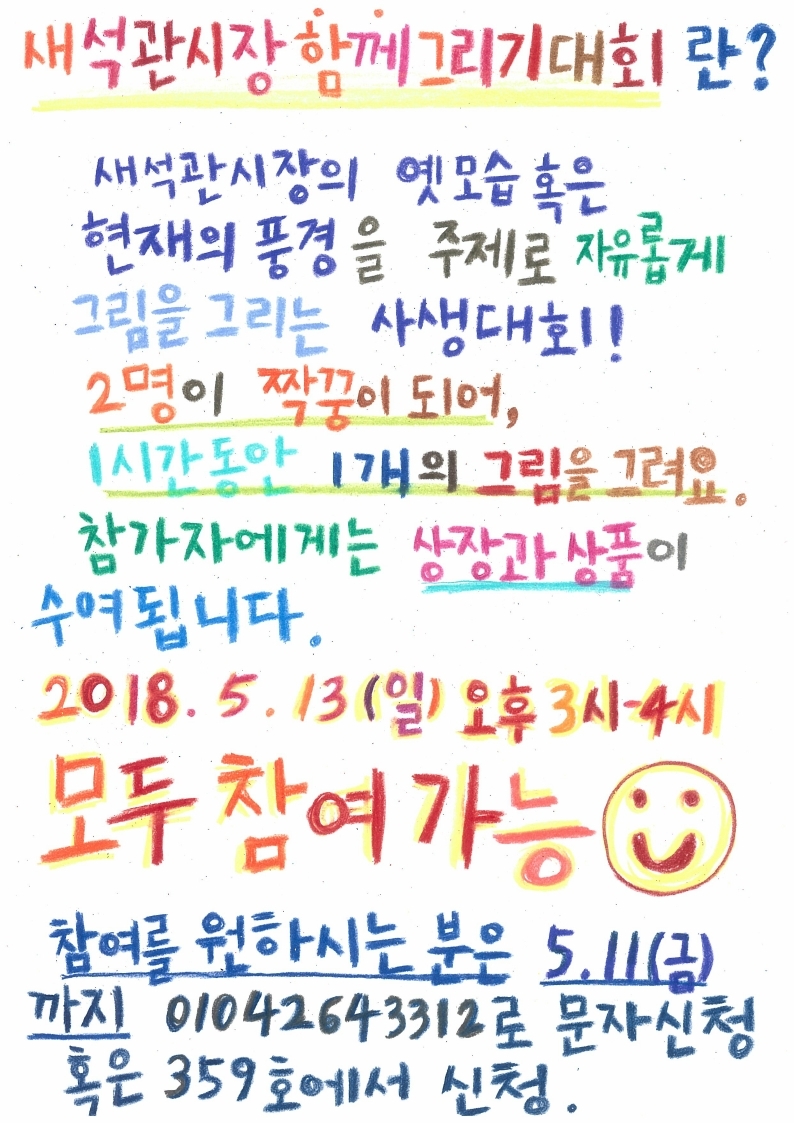 새석관시장 함께그리기대회 란?
새석관시장의 옛모습 혹은
현재의 풍경을 주제로 자유롭게
그림을 그리는 사생대회!
2명이 짝꿍이 되어,
1시간동안 1개의 그림을 그려요.
참가자에게는 상장과 상품이
수여됩니다.
2018. 5. 13 (일) 오후 3시-4시
모두 참여 가능
참여를 원하시는 분은 5.11(금)
까지 01042643312로 문자신청
혹은 359호에서 신청.